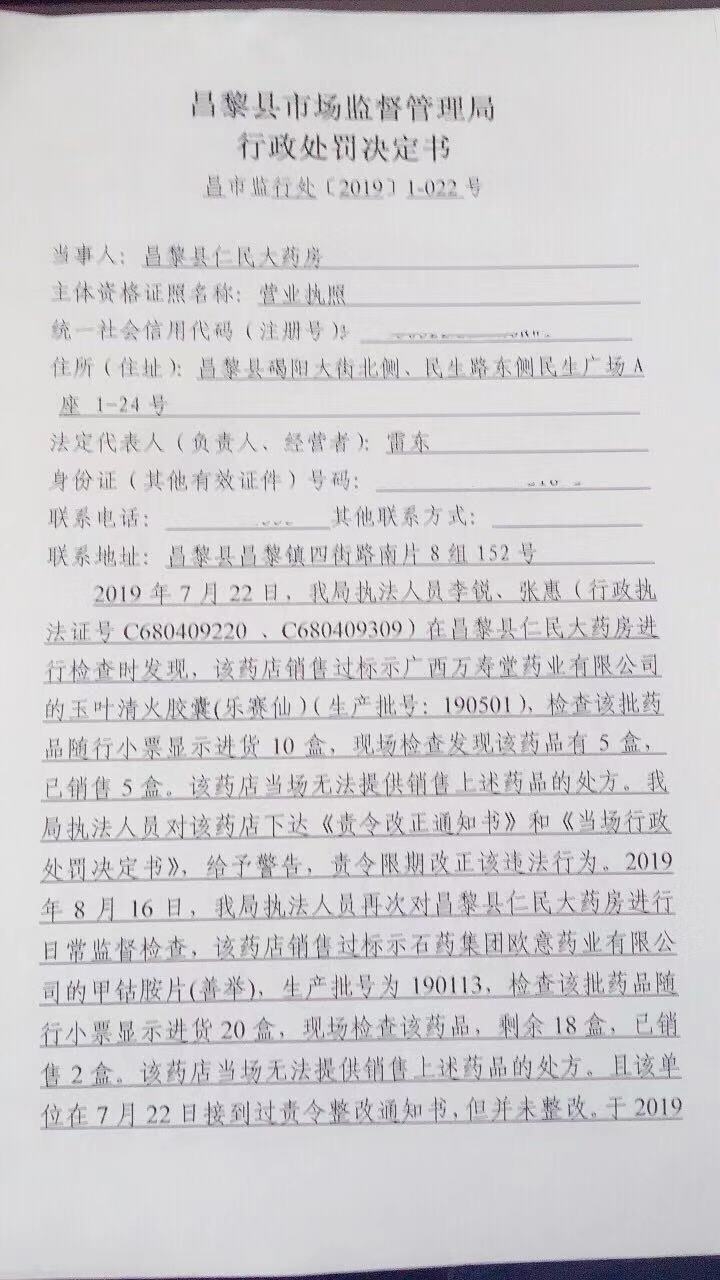 昌黎县市场监督管理局
行政处罚决定书
昌市监行处〔2019〕1-022号
当事人：昌黎县仁民大药房
主体资格证照名称：营业执照
统一社会信用代码（注册号）：
住所（住址）：昌黎县碣阳大街北侧、民生路东侧民生广场A
座 1-24号
法定代表人（负责人、经营者）：雷东
身份证（其他有效证件）号码：
联系电话： 其他联系方式：
联系地址：昌黎县昌黎镇四街路南片8组152号
2019年7月22日，我局执法人员李锐、张惠（行政执
法证号C680409220、C680409309）在昌黎县仁民大药房进
行检查时发现，该药店销售过标示广西万寿堂药业有限公司
的玉叶清火胶囊(乐赛仙)（生产批号：190501），检查该批药
品随行小票显示进货10盒，现场检查发现该药品有5盒，
已销售5盒。该药店当场无法提供销售上述药品的处方。我
局执法人员对该药店下达《责令改正通知书》和《当场行政
处罚决定书》，给予警告，责令限期改正该违法行为。2019
年8月16日，我局执法人员再次对昌黎县仁民大药房进行
日常监督检查，该药店销售过标示石药集团欧意药业有限公
司的甲钴胺片(善举)，生产批号为190113，检查该批药品随
行小票显示进货20盒，现场检查该药品，剩余18盒，已销
售2盒。该药店当场无法提供销售上述药品的处方。且该单
位在7月22日接到过责令整改通知书，但并未整改。于2019